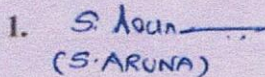 1. S. Aruna
(S. ARUNA)